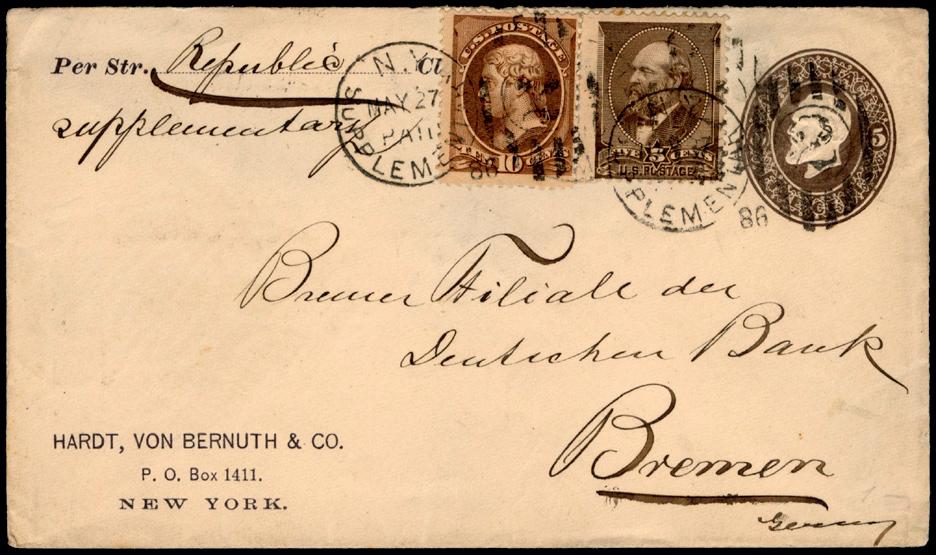 Per Str. Republic Cl
supplementary
N.Y.
MAY 27
PAID
SUPPLEMENTARY
86
U.S. POSTAGE
10
TEN CENTS
FIVE 5 CENTS
U.S. POSTAGE
SUPPLEMENTARY
86
5
Bremer Filiale der
Deutschen Bank
Bremen
Germany
HARDT, VON BERNUTH & CO.
P. O. Box 1411.
NEW YORK.